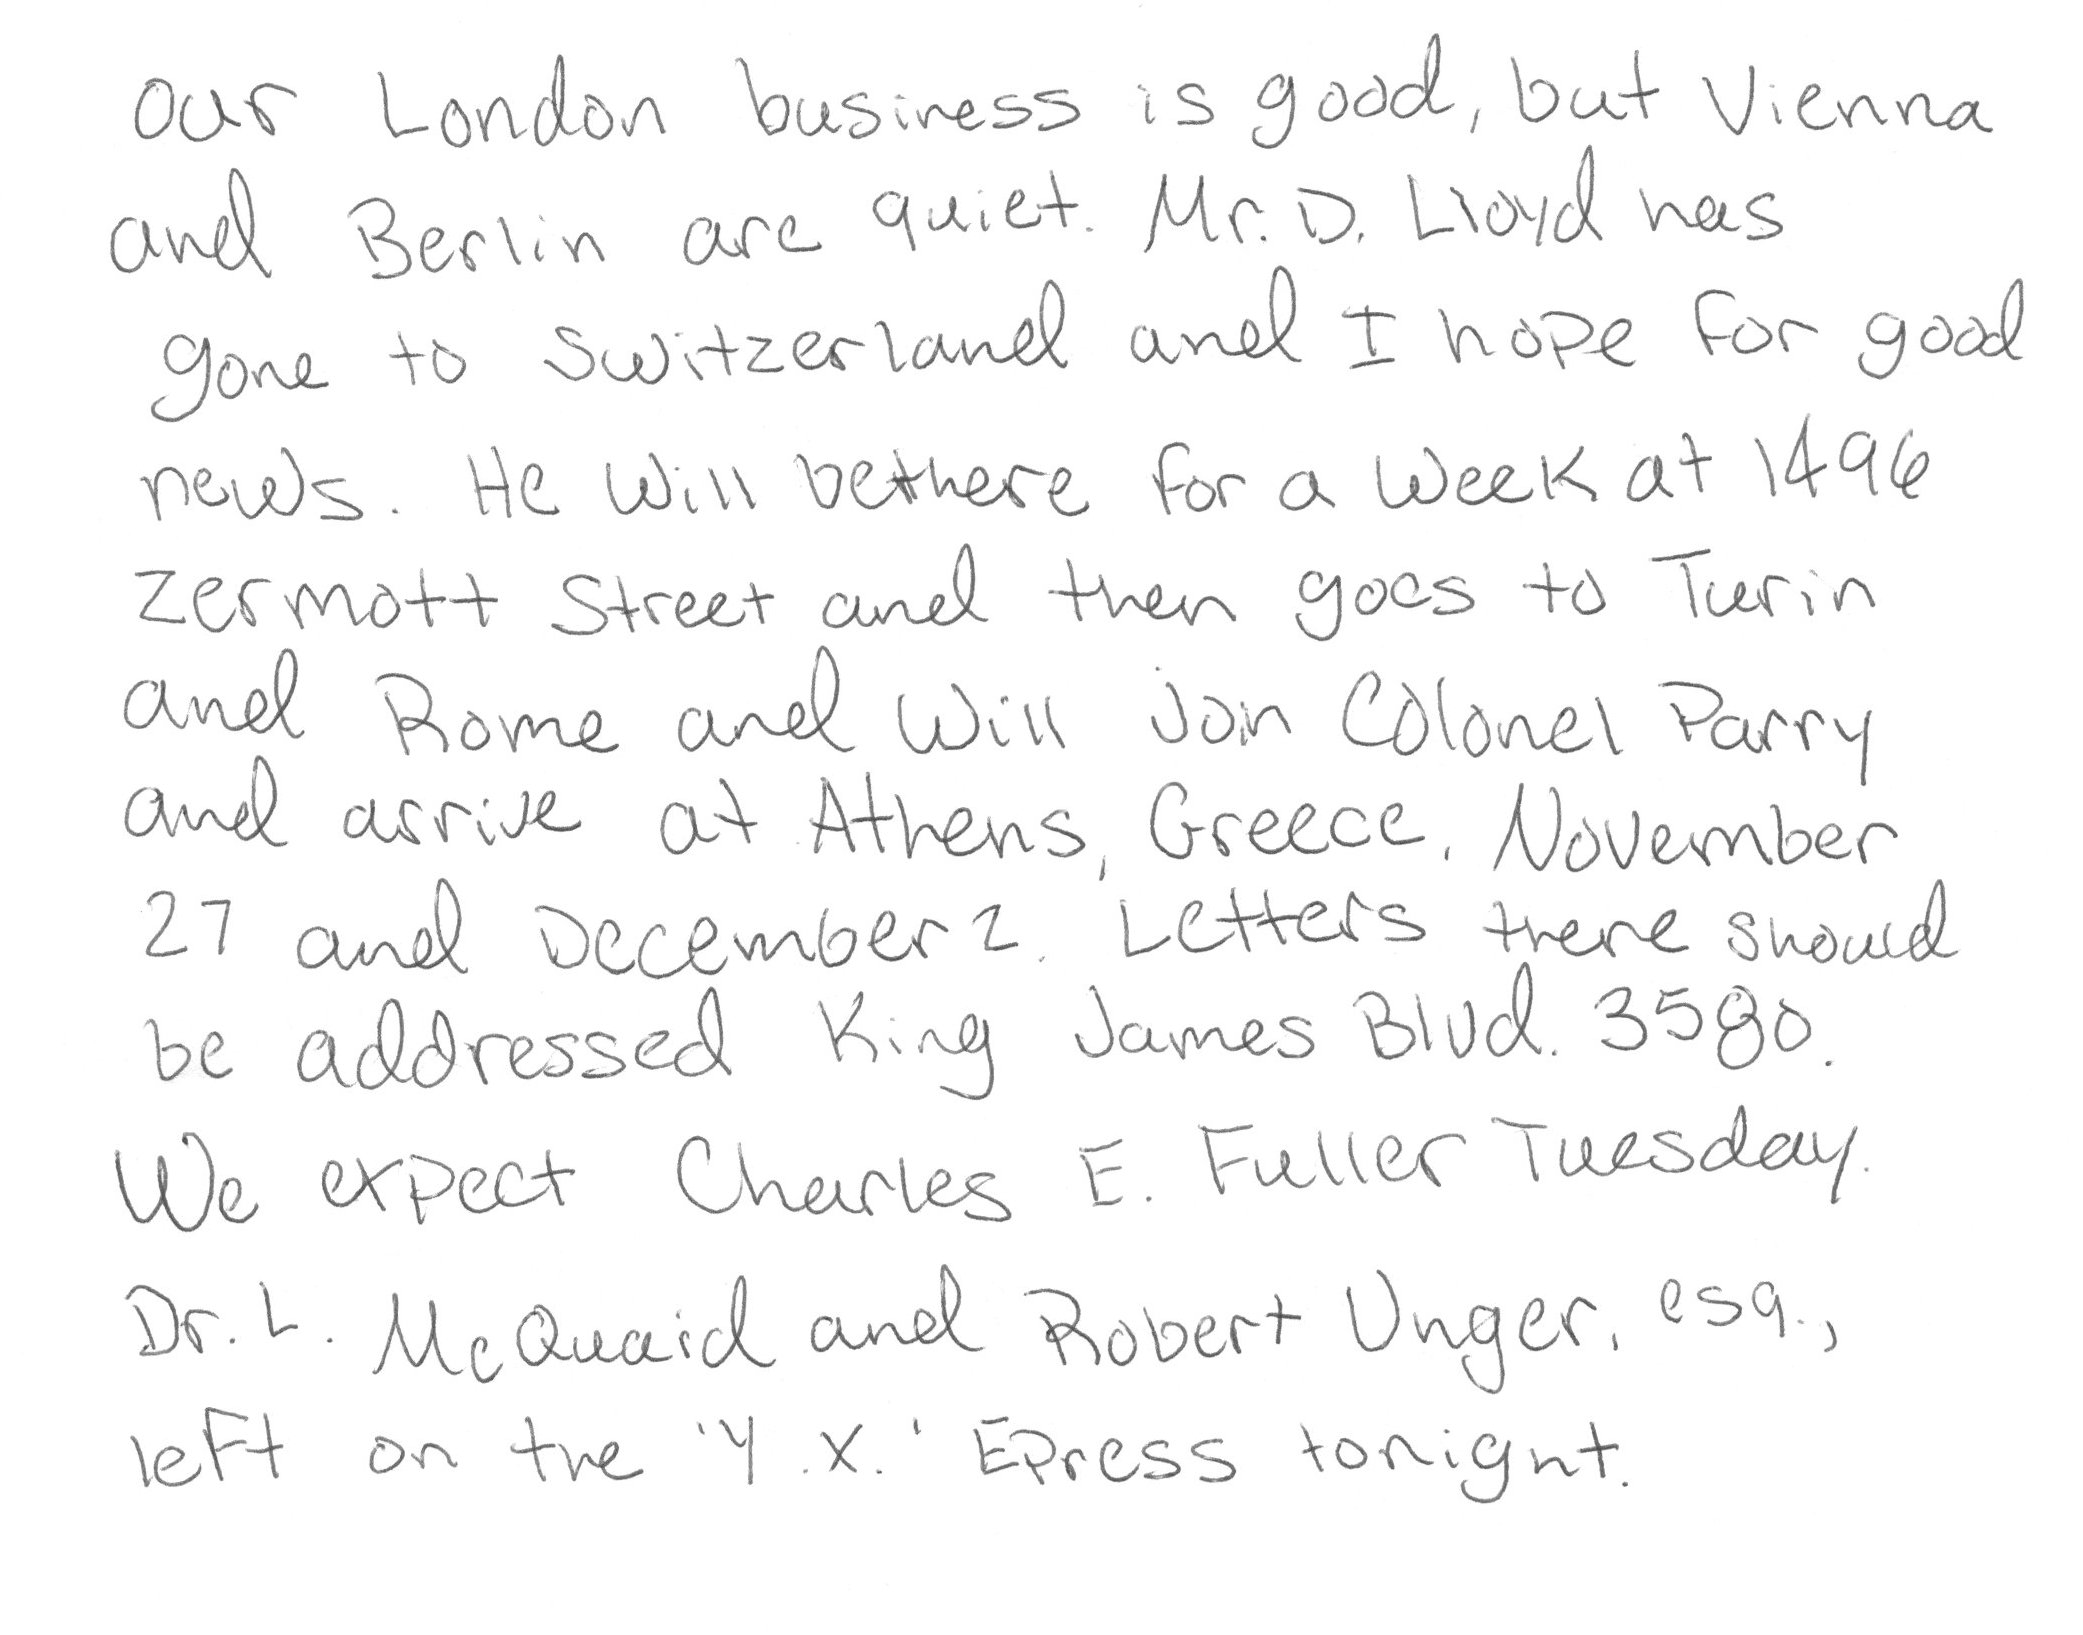 our London business is good, but Vienna
and Berlin are quiet. Mr. D. Lloyd has
gone to Switzerland and I hope for good
news. He will bethere for a week at 1496
Zermott Street and then goes to Turin
and Rome and will join Colonel Parry
and arrive at Athens, Greece, November
27 and December 2. Letters there should
be addressed King James Blvd. 3580.
We expect Charles E. Fuller Tuesday.
Dr. L. McQuaid and Robert Unger, esq.,
left on the 'Y.X.' Epress tonight.